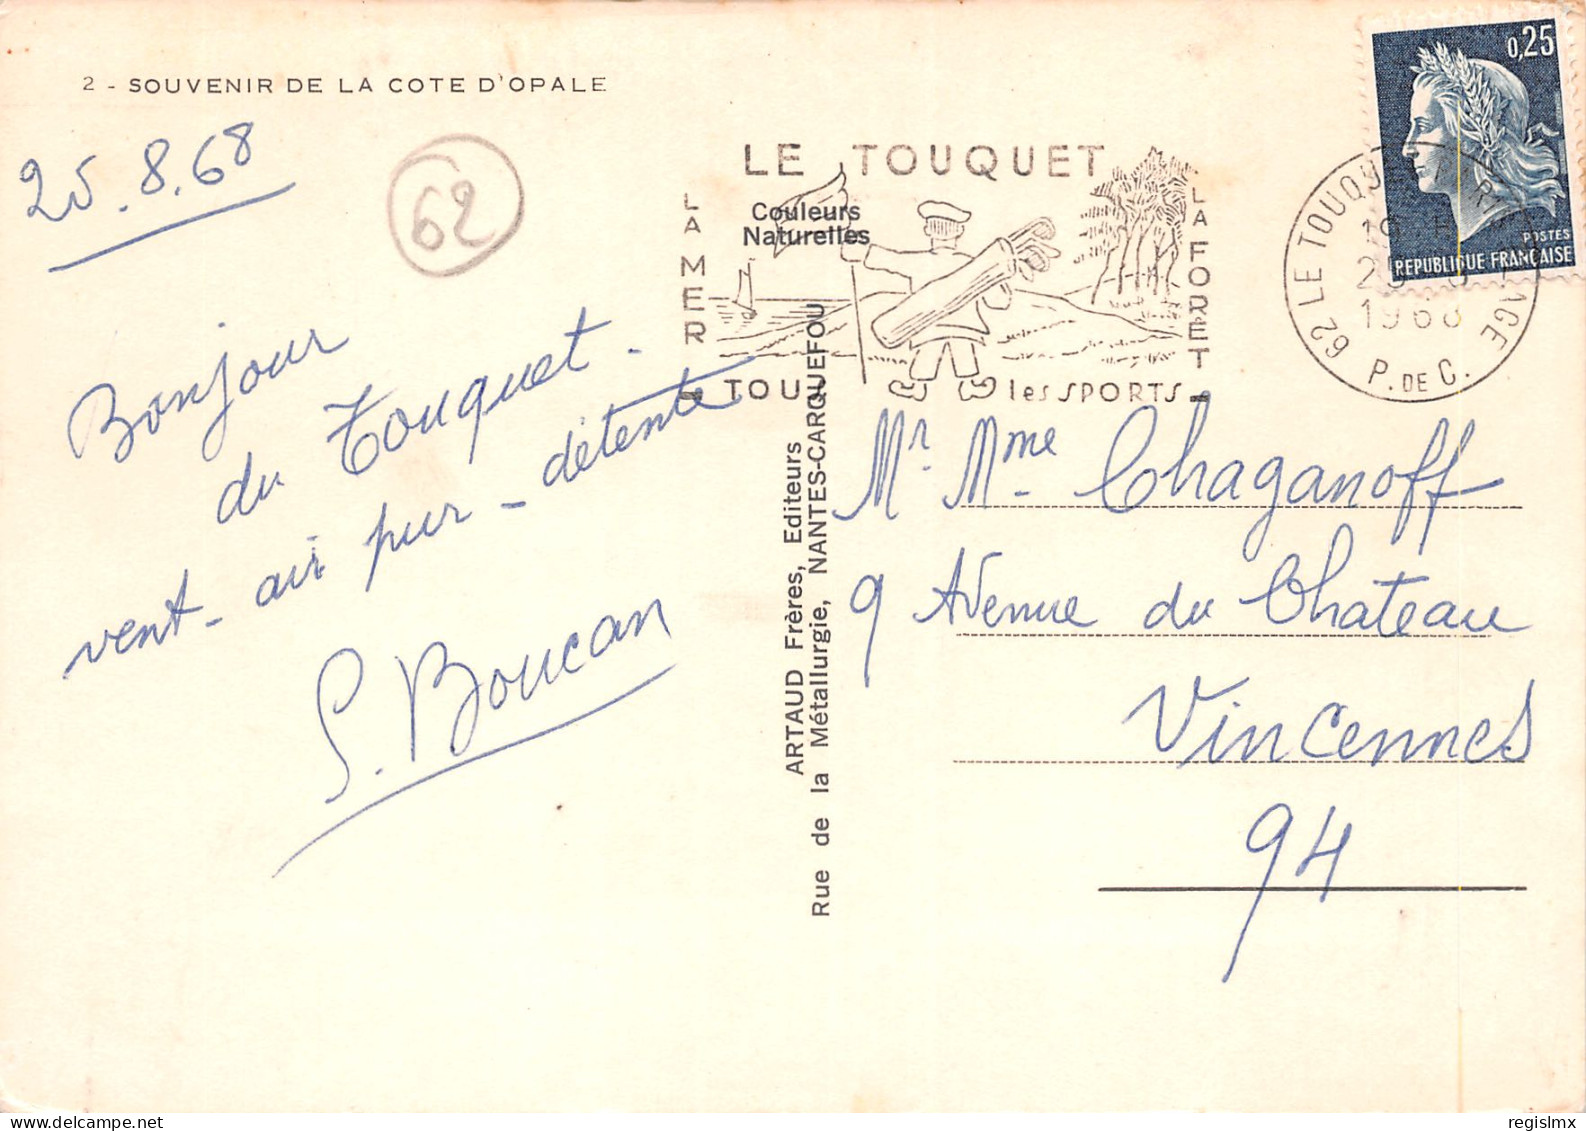 2 - SOUVENIR DE LA COTE D'OPALE
25.8.68
62
Bonjour
du Touquet.
vent - air pur - détente
S. Boucan
LE TOUQUET
LA MER
LA FORET
TOU les SPORTS
Couleurs
Naturelles
ARTAUD Frères, Editeurs
Rue de la Métallurgie, NANTES-CARQUEFOU
0,25
POSTES
REPUBLIQUE FRANÇAISE
62 LE TOUQU
1968
P. DE C.
Mr. Mme Chaganoff
9 Avenue du Chateau
Vincennes
94
delcampe.net
regislmx